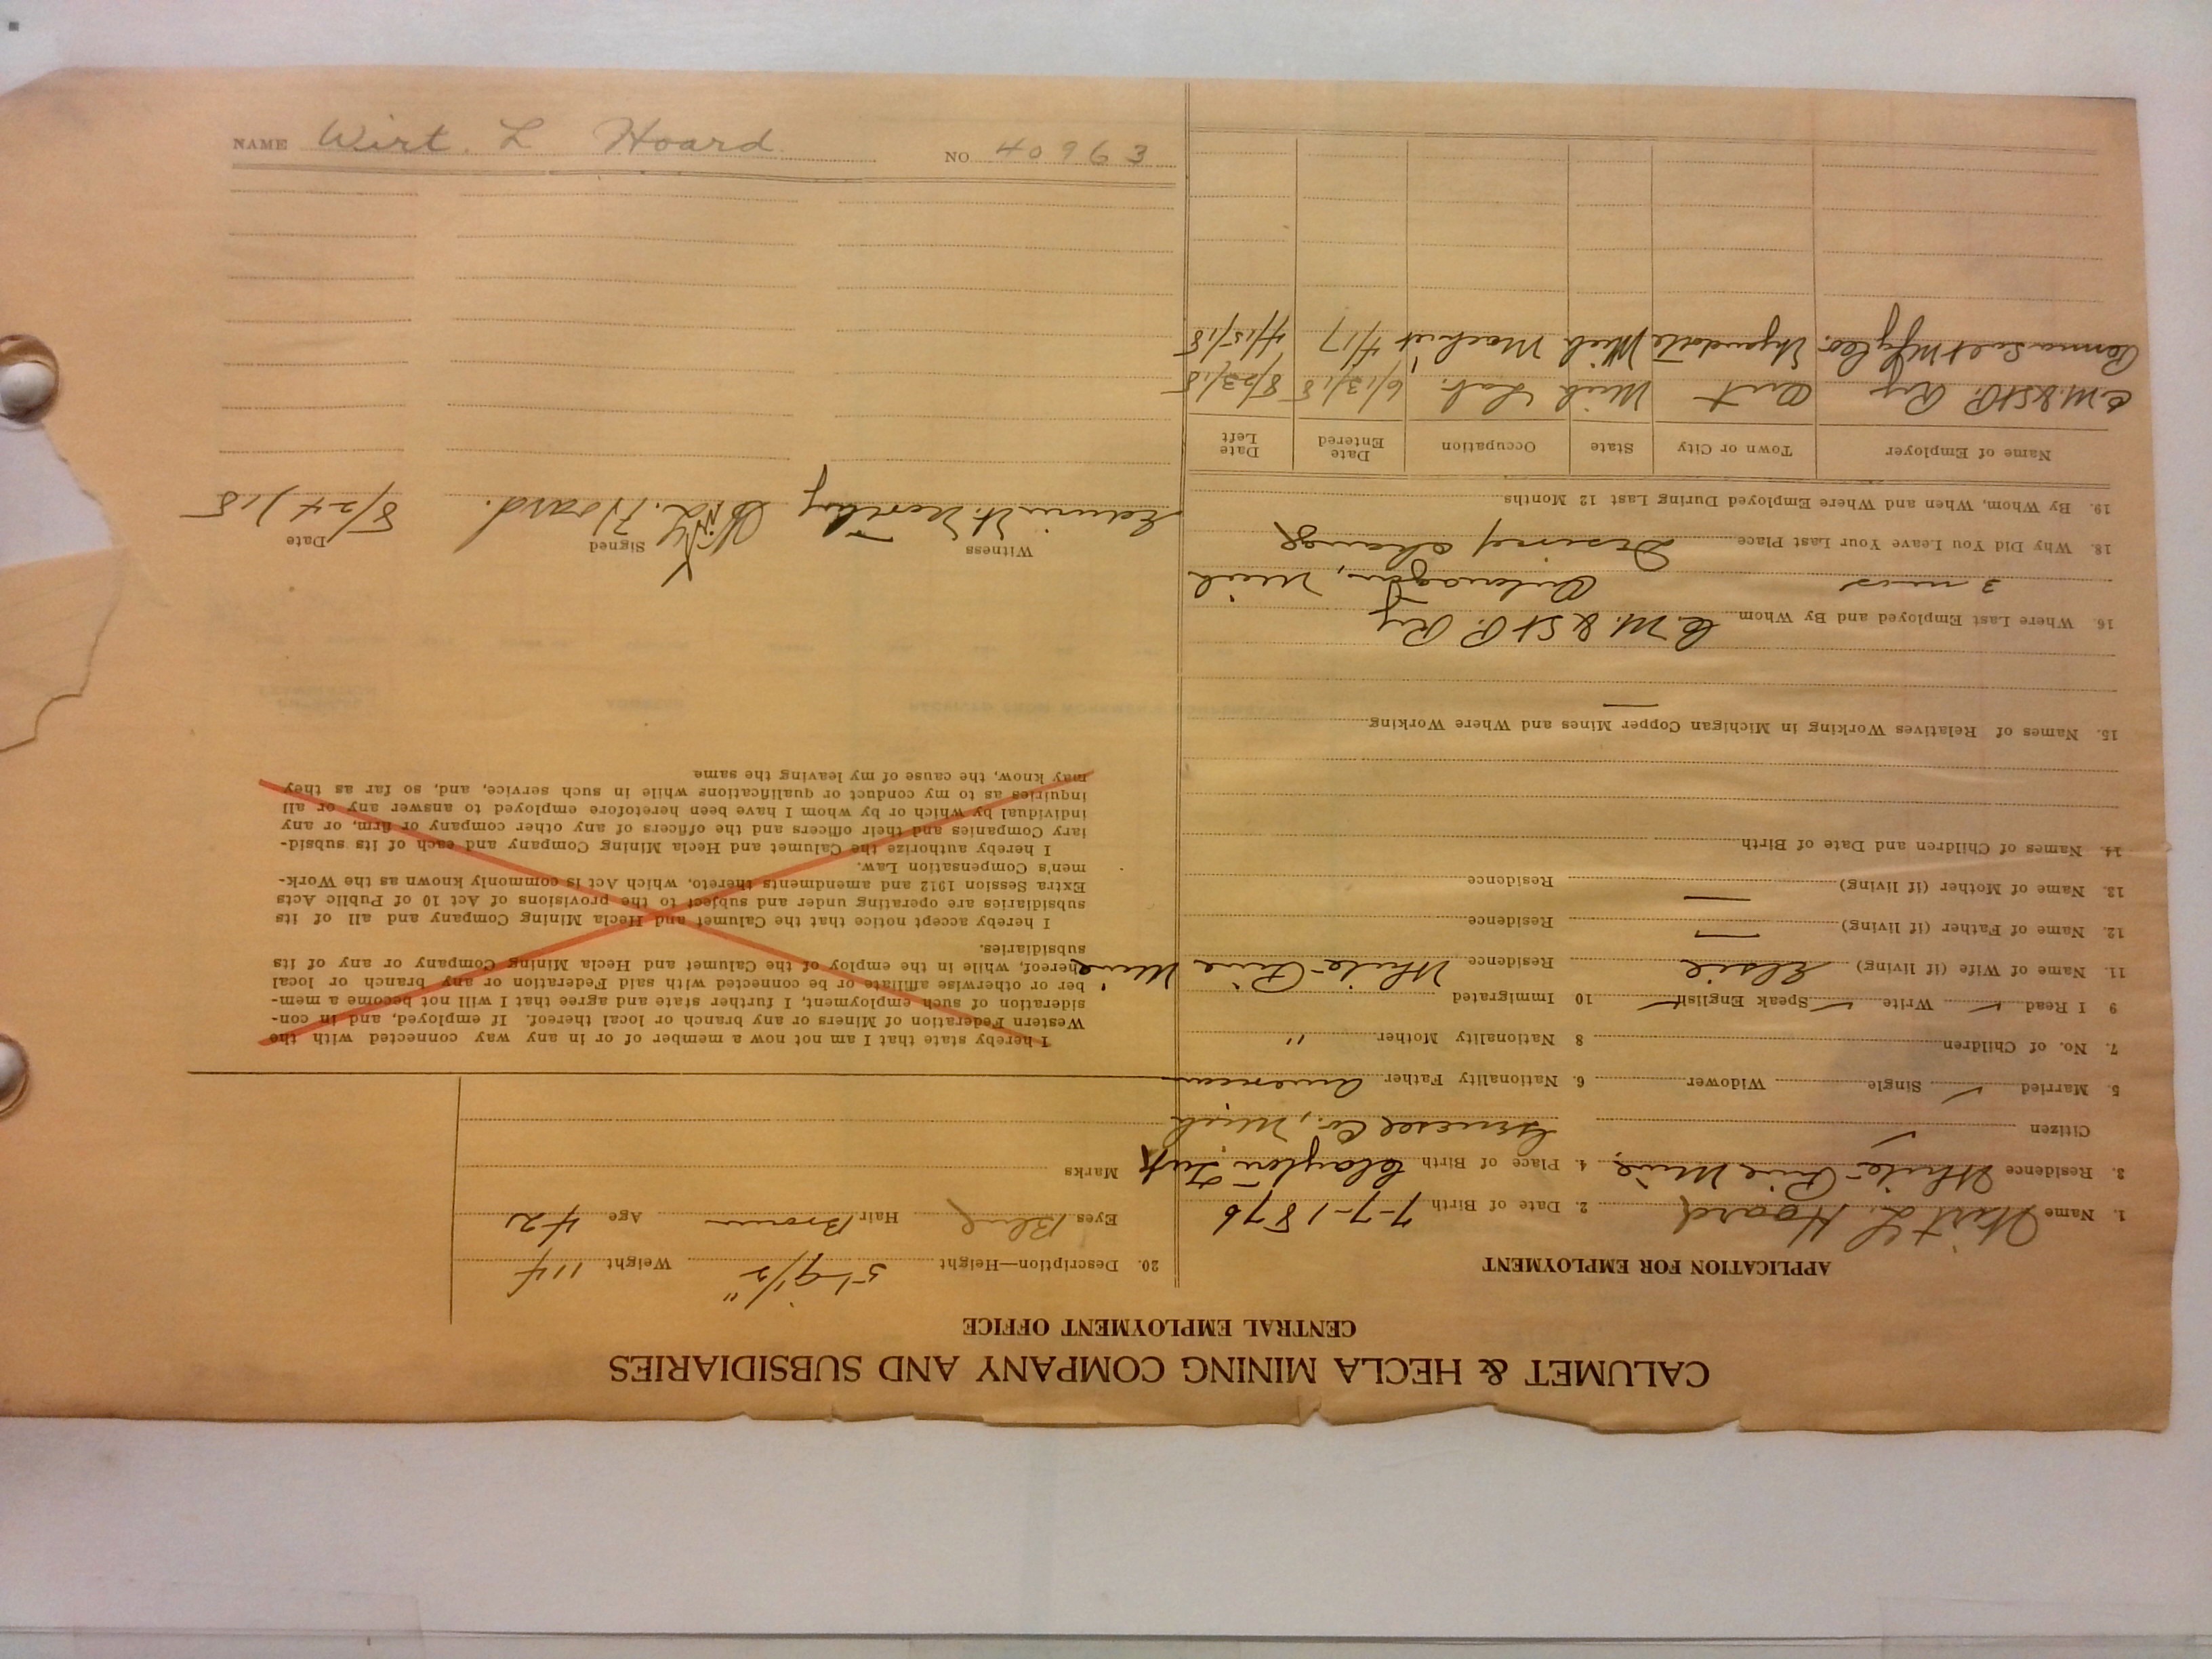 CALUMET & HECLA MINING COMPANY AND SUBSIDIARIES
CENTRAL EMPLOYMENT OFFICE
APPLICATION FOR EMPLOYMENT
1. Name Wirt L. Hoard 2. Date of Birth 7-7-1876
3. Residence White Pine Mine, 4. Place of Birth Clayton Twp
Citizen ✓ Genesee Co., Mich
5. Married ✓ Single Widower 6. Nationality Father American
7. No. of Children 8 Nationality Mother "
9 I Read ✓ Write ✓ Speak English ✓ 10 Immigrated
11. Name of Wife (if living) Elsie Residence White Pine Mine
12. Name of Father (if living) — Residence
13. Name of Mother (if living) — Residence
14. Names of Children and Date of Birth
15. Names of Relatives Working in Michigan Copper Mines and Where Working
—
16. Where Last Employed and By Whom C. M. & St P. Ry
3 mos Ontonagon, Mich
18. Why Did You Leave Your Last Place Desiring change
19. By Whom, When and Where Employed During Last 12 Months
Name of Employer Town or City State Occupation Date Entered Date Left
C. M. & St P. Ry Ont Mich Lab. 6/13/18 8/23/18
Penna Salt Mfg Co. Wyandotte Mich Machist 4/17 4/15/18
20. Description—Height 5'-9 1/2" Weight 114
Eyes Blue Hair Brown Age 42
Marks
I hereby state that I am not now a member of or in any way connected with the
Western Federation of Miners or any branch or local thereof. If employed, and in con-
sideration of such employment, I further state and agree that I will not become a mem-
ber or otherwise affiliate or be connected with said Federation or any branch or local
thereof, while in the employ of the Calumet and Hecla Mining Company or any of its
subsidiaries.
I hereby accept notice that the Calumet and Hecla Mining Company and all of its
subsidiaries are operating under and subject to the provisions of Act 10 of Public Acts
Extra Session 1912 and amendments thereto, which Act is commonly known as the Work-
men's Compensation Law.
I hereby authorize the Calumet and Hecla Mining Company and each of its subsid-
iary Companies and their officers and the officers of any other company or firm, or any
individual by which or by whom I have been heretofore employed to answer any or all
inquiries as to my conduct or qualifications while in such service, and, so far as they
may know, the cause of my leaving the same
Witness Signed Date
Edwin H. X Wirt L. Hoard. 8/24/18
NAME Wirt. L Hoard. NO 40963